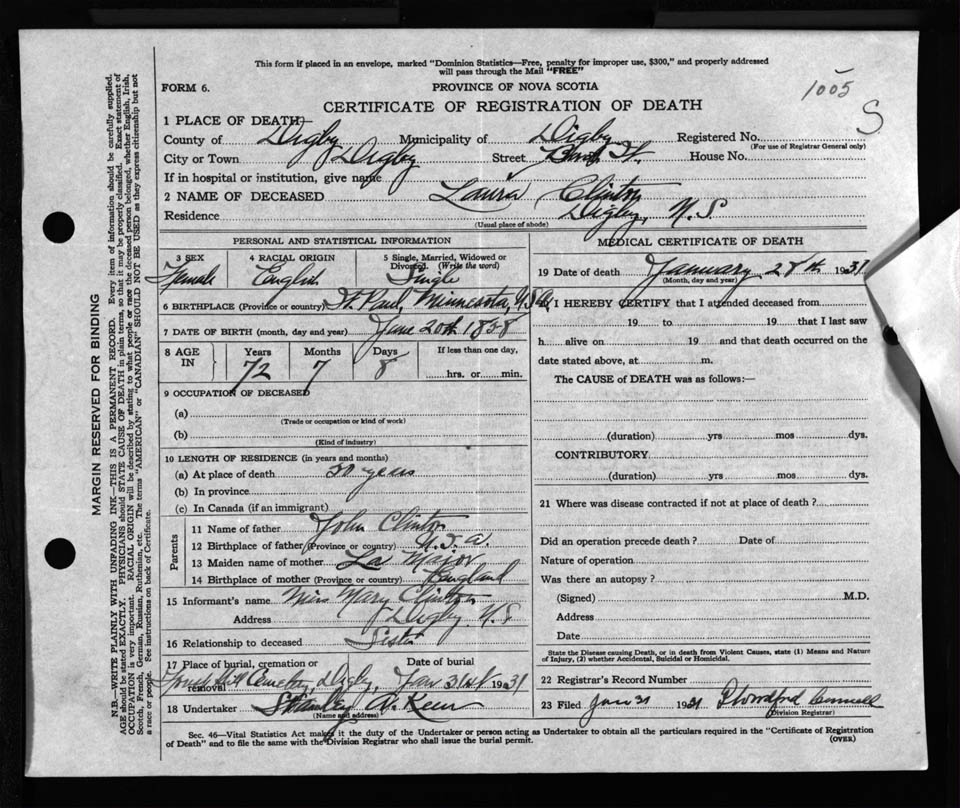 This form if placed in an envelope, marked "Dominion Statistics—Free, penalty for improper use, $300," and properly addressed
will pass through the Mail "FREE"
FORM 6.
PROVINCE OF NOVA SCOTIA
1005
S
CERTIFICATE OF REGISTRATION OF DEATH
1 PLACE OF DEATH
County of Digby Municipality of Digby Registered No.
(For use of Registrar General only)
City or Town Digby Street House No.
If in hospital or institution, give name
2 NAME OF DECEASED Laura Clinton
Residence Digby, N.S.
(Usual place of abode)
PERSONAL AND STATISTICAL INFORMATION
3 SEX 4 RACIAL ORIGIN 5 Single, Married, Widowed or
Divorced. (Write the word)
Female English Single
6 BIRTHPLACE (Province or country) St. Paul, Minnesota, USA
7 DATE OF BIRTH (month, day and year) June 20th 1858
8 AGE IN Years Months Days If less than one day,
72 7 8 hrs. or min.
9 OCCUPATION OF DECEASED
(a)
(Trade or occupation or kind of work)
(b)
(Kind of industry)
10 LENGTH OF RESIDENCE (in years and months)
(a) At place of death 20 years
(b) In province
(c) In Canada (if an immigrant)
Parents
11 Name of father John Clinton
12 Birthplace of father (Province or country) U.S.A
13 Maiden name of mother La Major
14 Birthplace of mother (Province or country) England
15 Informant's name Miss Mary Clinton
Address Digby N.S
16 Relationship to deceased Sister
17 Place of burial, cremation or removal Date of burial
Forest Hill Cemetery, Digby, Jan 31st 1931
18 Undertaker Stanley A.
(Name and address)
MEDICAL CERTIFICATE OF DEATH
19 Date of death January 28th 1931
(Month, day and year)
I HEREBY CERTIFY that I attended deceased from
19 to 19 that I last saw
h alive on 19 and that death occurred on the
date stated above, at m.
The CAUSE of DEATH was as follows:—
(duration) yrs mos dys.
CONTRIBUTORY
(duration) yrs mos dys.
21 Where was disease contracted if not at place of death?
Did an operation precede death? Date of
Nature of operation
Was there an autopsy?
(Signed) M.D.
Address
Date
State the Disease causing Death, or in death from Violent Causes, state (1) Means and Nature
of Injury, (2) whether Accidental, Suicidal or Homicidal.
22 Registrar's Record Number
23 Filed Jan 31 1931
Division Registrar
Sec. 46—Vital Statistics Act makes it the duty of the Undertaker or person acting as Undertaker to obtain all the particulars required in the "Certificate of Registration
of Death" and to file the same with the Division Registrar who shall issue the burial permit. (OVER)
MARGIN RESERVED FOR BINDING
N.B.—WRITE PLAINLY WITH UNFADING INK—THIS IS A PERMANENT RECORD. Every item of information should be carefully supplied.
AGE should be stated EXACTLY. PHYSICIANS should STATE CAUSE OF DEATH in plain terms, so that it may be properly classified. Exact statement of
OCCUPATION is very important. RACIAL ORIGIN will be described by stating to what people or race the deceased person belonged, whether English, Irish,
Scotch, French, German, Russian, Ruthenian, etc. The terms "AMERICAN" or "CANADIAN" SHOULD NOT BE USED as they express citizenship but not
a race or people. See instructions on back of Certificate.